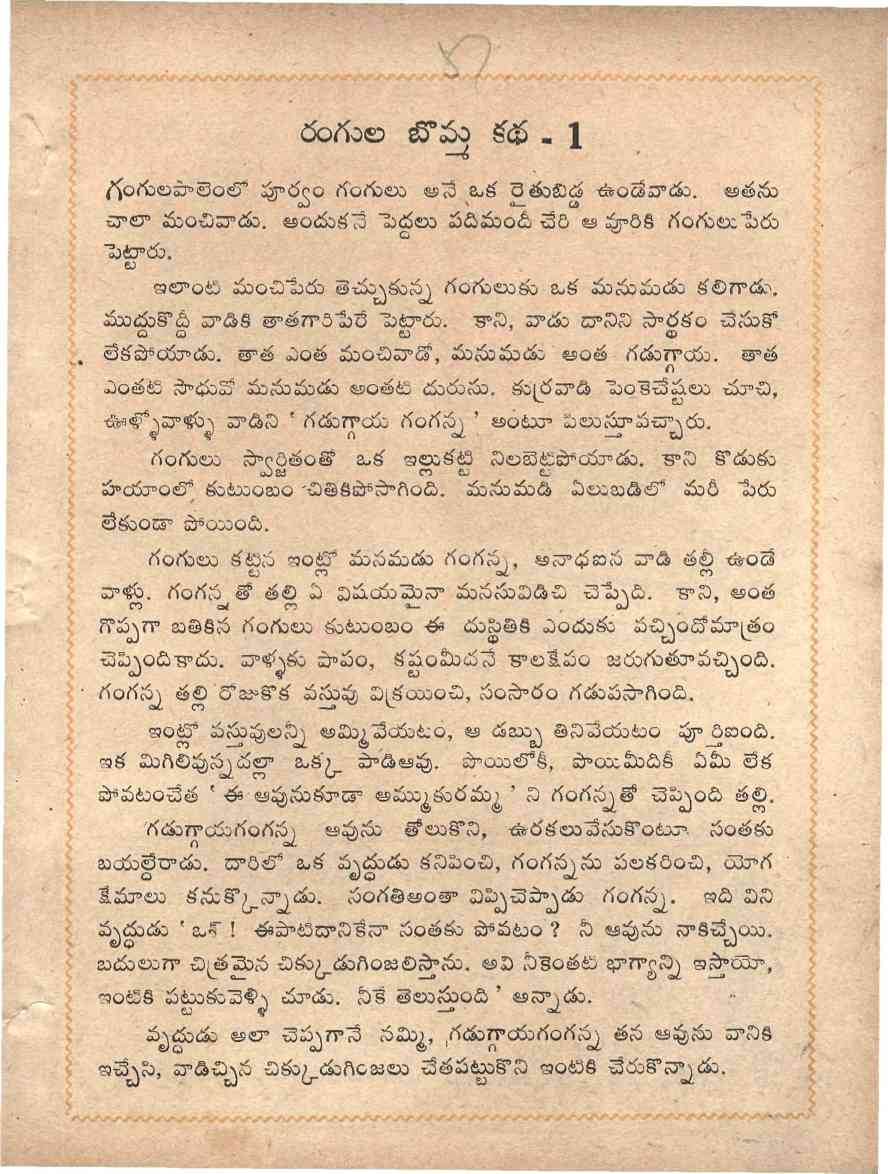 రంగుల బొమ్మ కథ - 1
గంగులపాలెంలో పూర్వం గంగులు అనే ఒక రైతుబిడ్డ ఉండేవాడు. అతను
చాలా మంచివాడు. అందుకనే పెద్దలు పదిమందీ చేరి ఆ వూరికి గంగులు పేరు
పెట్టారు.
ఇలాంటి మంచిపేరు తెచ్చుకున్న గంగులుకు ఒక మనుమడు కలిగాడు.
ముద్దుకొద్దీ వాడికి తాతగారిపేరే పెట్టారు. కాని, వాడు దానిని సార్థకం చేసుకో
లేకపోయాడు. తాత ఎంత మంచివాడో, మనుమడు అంత గడుగ్గాయ. తాత
ఎంతటి సాధువో మనుమడు అంతటి దురుసు. కుర్రవాడి పెంకెచేష్టలు చూచి,
ఊళ్ళోవాళ్ళు వాడిని ' గడుగ్గాయ గంగన్న ' అంటూ పిలుస్తూవచ్చారు.
గంగులు స్వార్జితంతో ఒక ఇల్లుకట్టి నిలబెట్టిపోయాడు. కాని కొడుకు
హయాంలో కుటుంబం చితికిపోసాగింది. మనుమడి ఏలుబడిలో మరీ పేరు
లేకుండా పోయింది.
గంగులు కట్టిన ఇంట్లో మనమడు గంగన్న, అనాధఐన వాడి తల్లీ ఉండే
వాళ్లు. గంగన్నతో తల్లి ఏ విషయమైనా మనసువిడిచి చెప్పేది. కాని, అంత
గొప్పగా బతికిన గంగులు కుటుంబం ఈ దుస్థితికి ఎందుకు వచ్చిందోమాత్రం
చెప్పిందికాదు. వాళ్ళకు పాపం, కష్టంమీదనే కాలక్షేపం జరుగుతూవచ్చింది.
గంగన్న తల్లి రోజుకొక వస్తువు విక్రయించి, సంసారం గడుపసాగింది.
ఇంట్లో వస్తువులన్నీ అమ్మివేయటం, ఆ డబ్బు తినివేయటం పూర్తిఐంది.
ఇక మిగిలివున్నదల్లా ఒక్క పాడిఆవు. పొయిలోకీ, పొయిమీదికీ ఏమీ లేక
పోవటంచేత ' ఈ ఆవునుకూడా అమ్ముకురమ్మ ' ని గంగన్నతో చెప్పింది తల్లి.
గడుగ్గాయగంగన్న ఆవును తోలుకొని, ఉరకలువేసుకొంటూ సంతకు
బయల్దేరాడు. దారిలో ఒక వృద్ధుడు కనిపించి, గంగన్నను పలకరించి, యోగ
క్షేమాలు కనుక్కొన్నాడు. సంగతిఅంతా విప్పిచెప్పాడు గంగన్న. ఇది విని
వృద్ధుడు ' ఒస్ ! ఈపాటిదానికేనా సంతకు పోవటం ? నీ ఆవును నాకిచ్చేయి.
బదులుగా చిత్రమైన చిక్కుడుగింజలిస్తాను. అవి నీకెంతటి భాగ్యాన్ని ఇస్తాయో,
ఇంటికి పట్టుకువెళ్ళి చూడు. నీకే తెలుస్తుంది ' అన్నాడు.
వృద్ధుడు అలా చెప్పగానే నమ్మి, గడుగ్గాయగంగన్న తన ఆవును వానికి
ఇచ్చేసి, వాడిచ్చిన చిక్కుడుగింజలు చేతపట్టుకొని ఇంటికి చేరుకొన్నాడు.